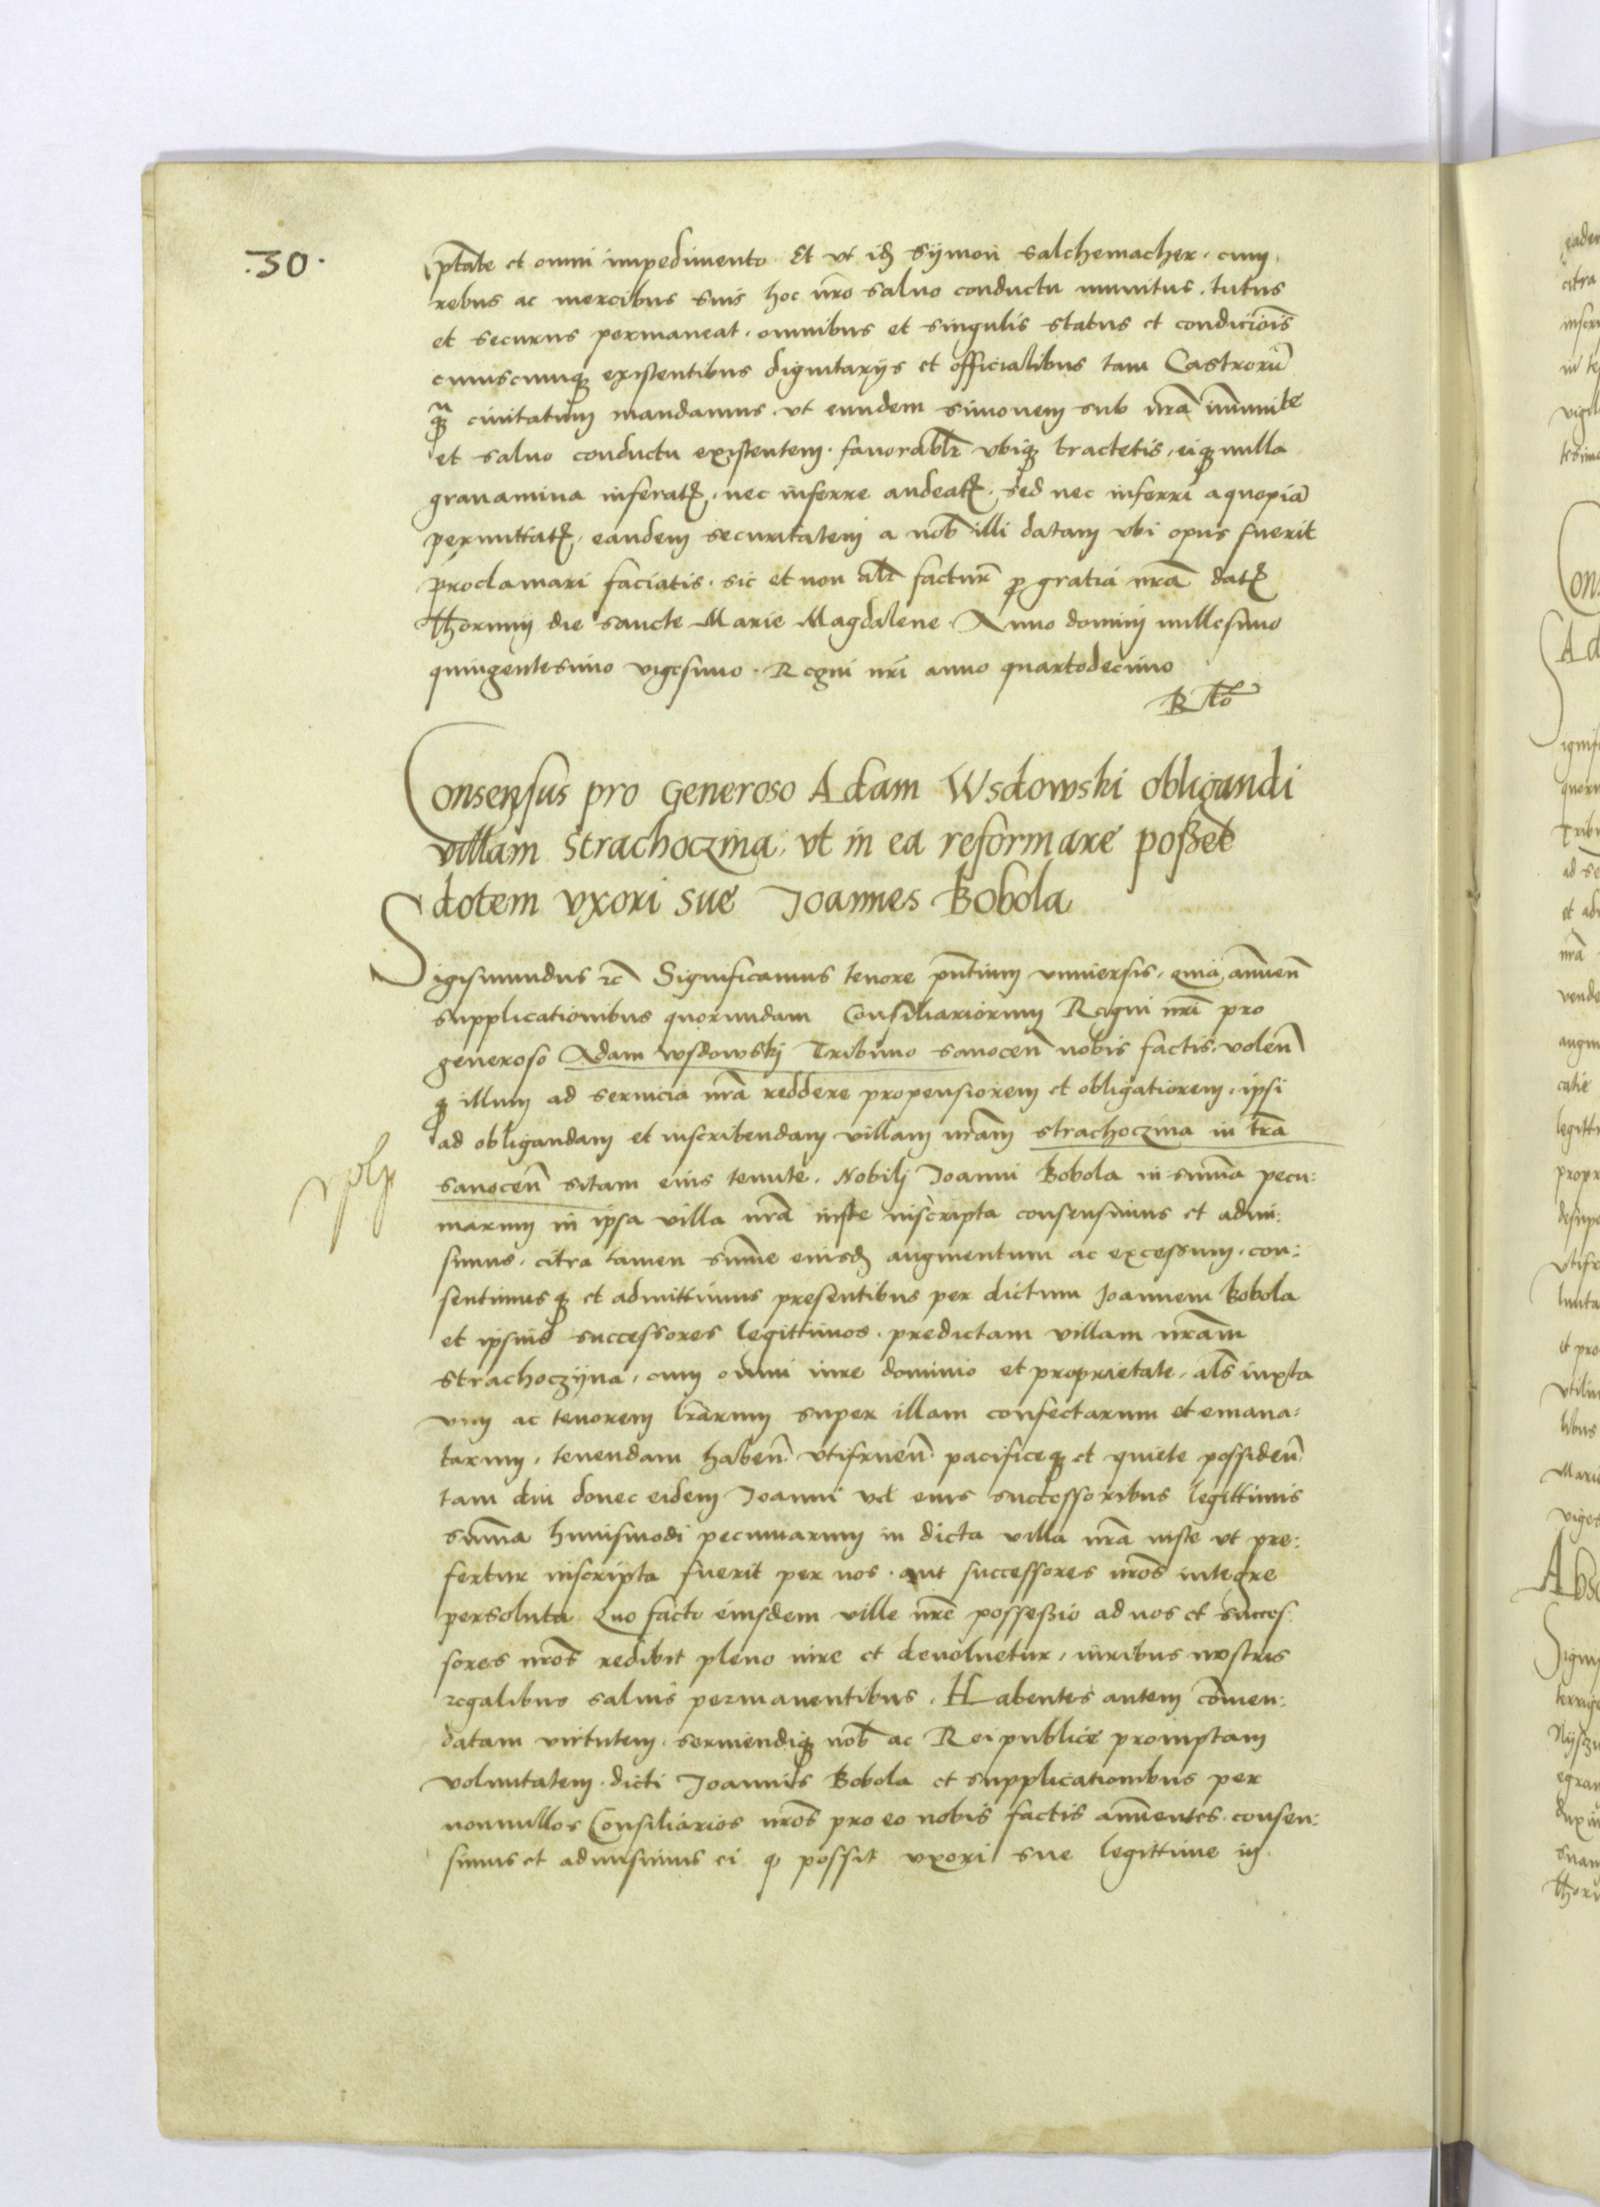 .30.
ptate et omni impedimento Et vt idem Symon Salchemacher cum
rebus ac mercibus suis hoc nro saluo conductu munitus tutus
et securus permaneat omnibus et singulis status et condicionis
cuiuscumque existentibus dignitarys et officialibus tam Castrorum
quam ciuitatum mandamus vt eundem Simonem sub nra immunite
et saluo conductu existentem fauorablr vbique tractetis eique nulla
grauamina inferatis nec inferre audeatis sed nec inferri a quopiam
permittatis eandem securitatem a nob illi datam vbi opus fuerit
proclamari faciatis sic et non alr factur pro gratia nra datum
thorunij die sancte Marie Magdalene Anno domini millesimo
quingentesimo vigesimo Regni nri anno quartodecimo
Rto
Consensus pro Generoso Adam Wsdowski obligandi
villam Strachoczina, vt in ea reformare posset
dotem vxori sue Joannes Bobola
Sigismundus rc Significamus tenore pntium vniuersis, quia annuen
supplicationibus quorundam Consiliariorum Regni nri pro
generoso Adam wsdowskj Tribuno sanocen nobis factis, volen
que illum ad seruicia nra reddere propensiorem et obligatiorem, ipsi
ad obligandam et inscribendam villam nram strachoczina in tra
sanocen sitam eius tenute, Nobilj Joanni Bobola in summa pecu:
niarum in ipsa villa nra iuste inscripta consensimus et admi:
simus, citra tamen summe eiusdem augmentum ac excessum, con:
sentimusque et admittimus presentibus per dictum Joannem Bobola
et ipsius successores legittimos predictam villam nram
strachoczyna, cum omni iure dominio et proprietate, als iuxta
vim ac tenorem lrarum super illam confectarum et emana:
tarum, tenendam haben vtifruen pacificeque et quiete possiden
tam diu donec eidem Joanni vel eius successoribus legittimis
summa huiusmodi pecuniarum in dicta villa nra iuste vt pre:
fertur inscripta fuerit per nos aut successores nros integre
persoluta Quo facto eiusdem ville nre possessio ad nos et succes:
sores nros redibit pleno iure et deuoluetur, iuribus nostris
regalibus saluis permanentibus. Habentes autem commen:
datam virtutem seruiendique nob ac Reipublice promptam
voluntatem dicti Joannis Bobola et supplicationibus per
nonnullos Consiliarios nros pro eo nobis factis annuentes consen:
simus et admisimus ei quod possit vxori sue legittime in